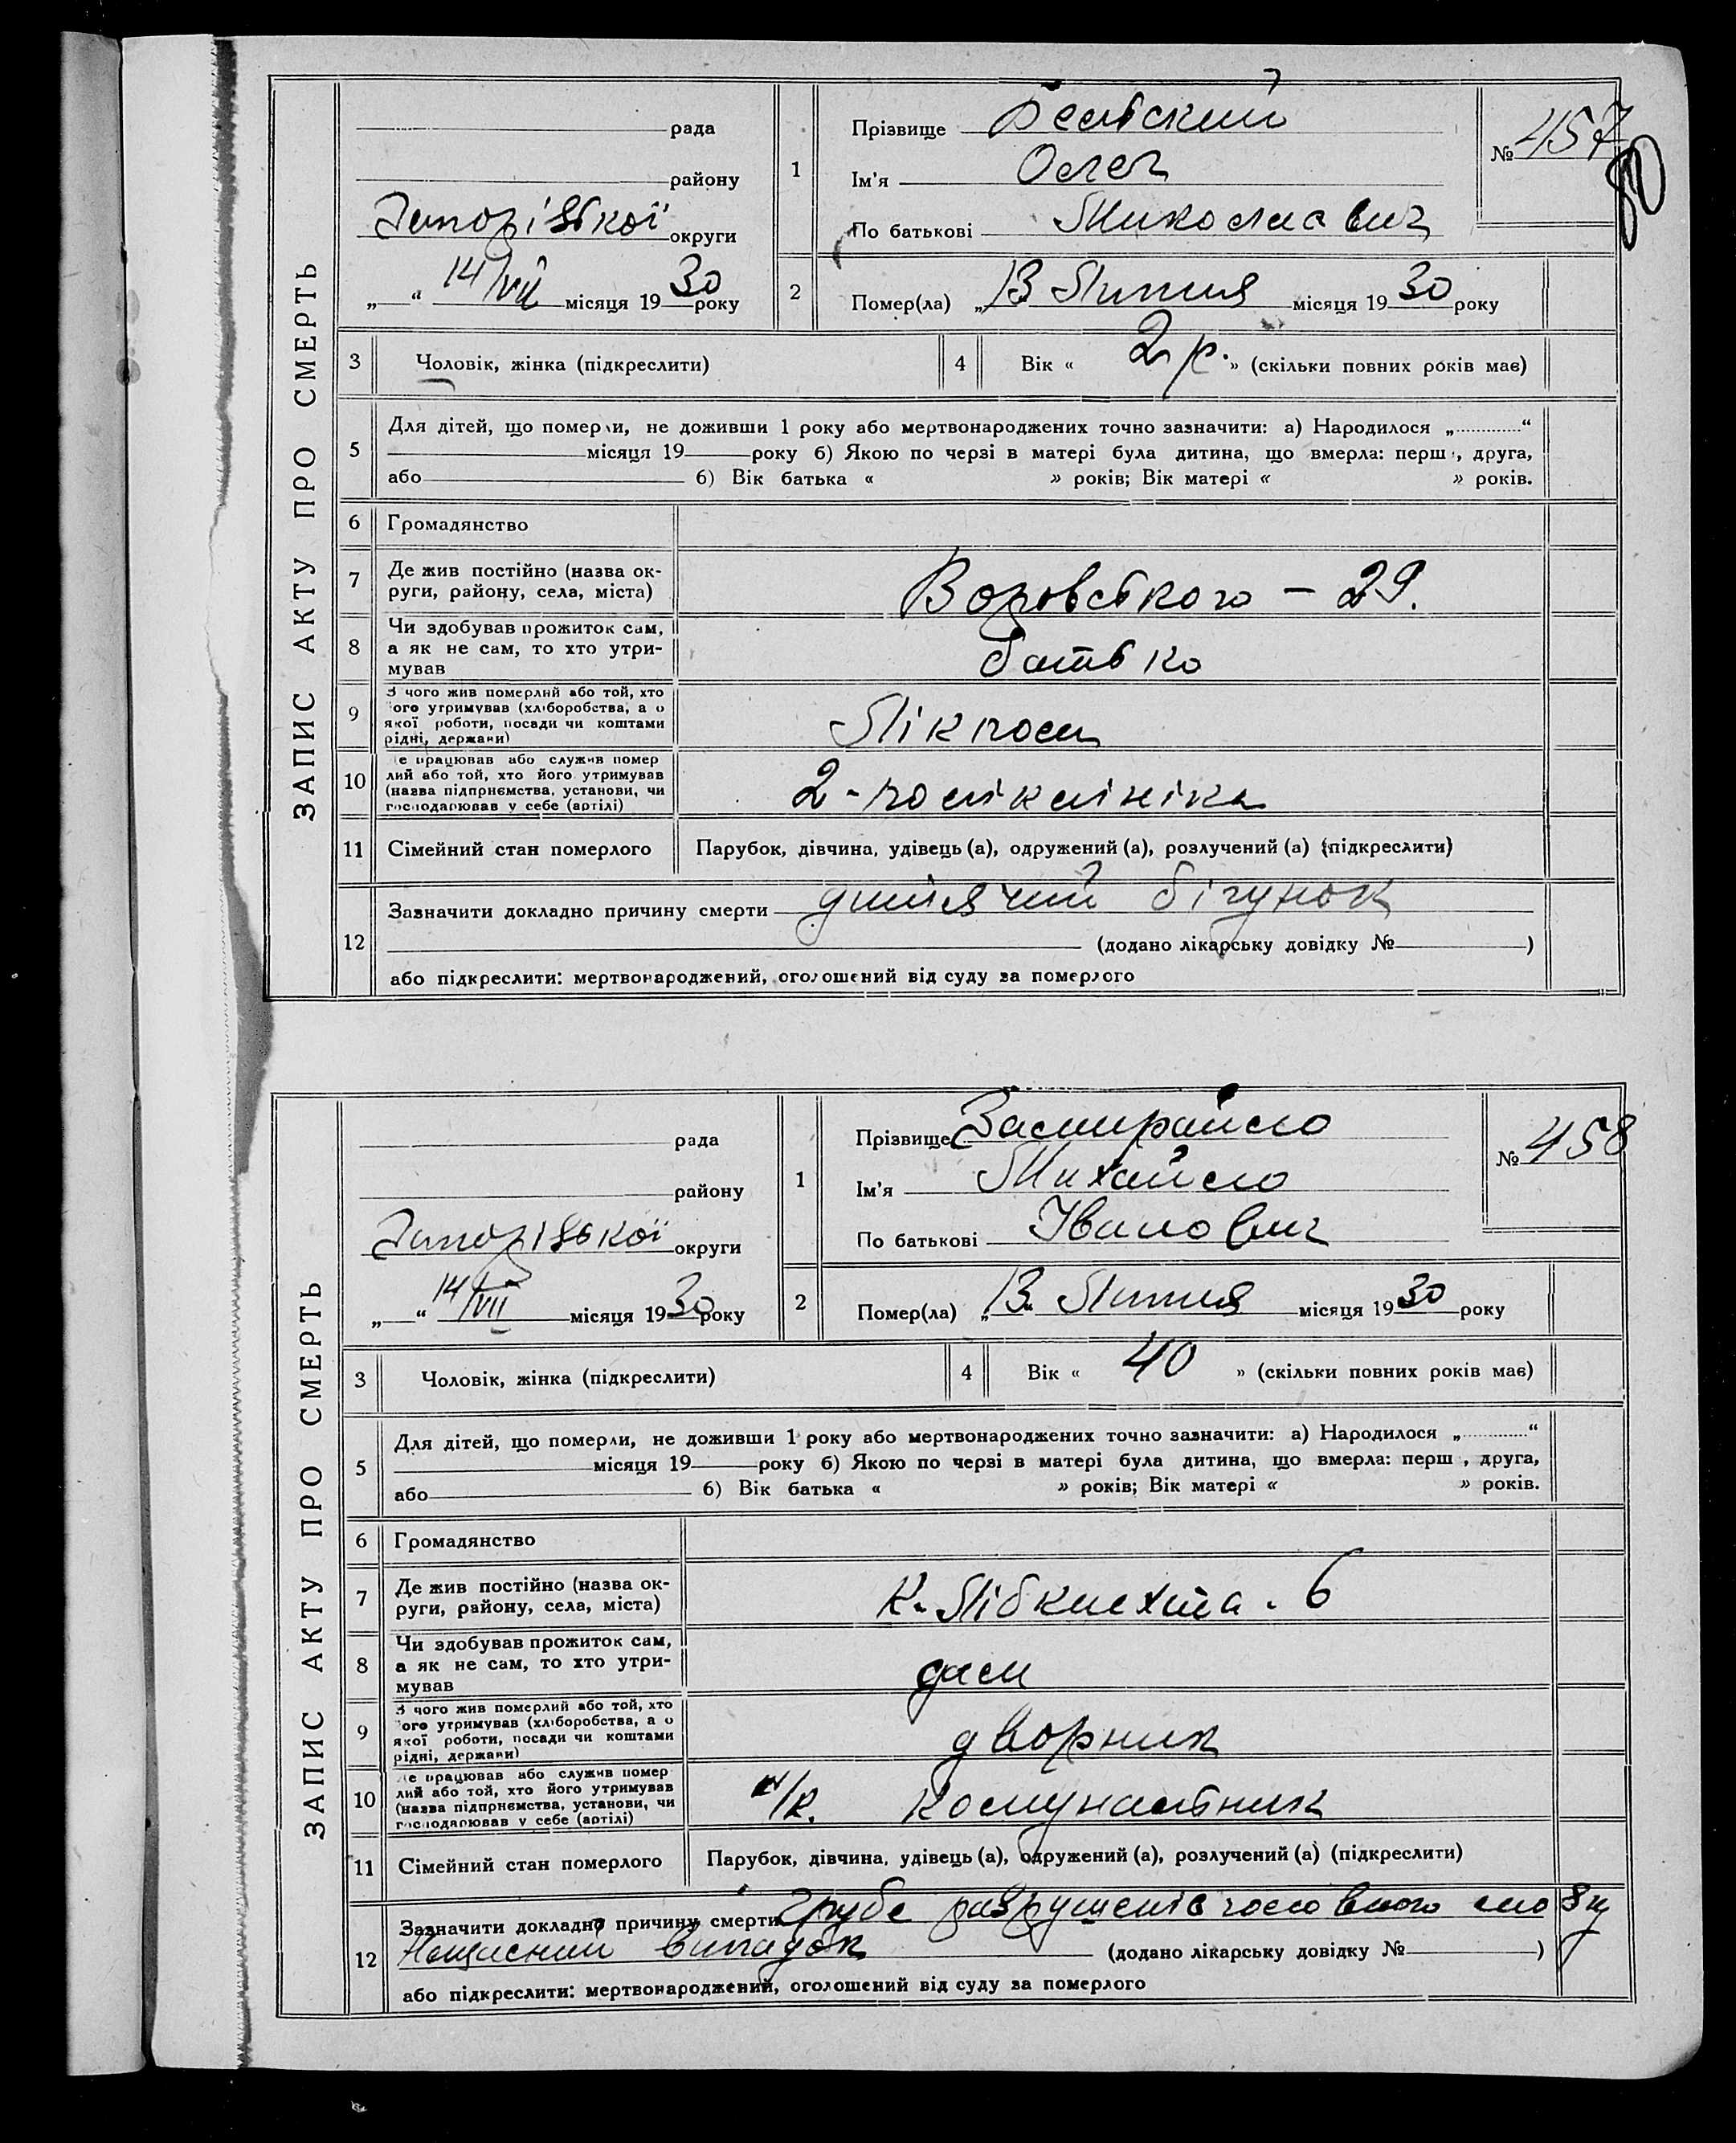 ЗАПИС АКТУ ПРО СМЕРТЬ
рада
району
Запорізької округи
„ “ 14/VII місяця 1930 року
1
Прізвище
Ім'я Олег
По батькові Миколаєвич
№ 457
80
2
Помер(ла) „13 Липня місяця 1930 року
3
Чоловік, жінка (підкреслити)
4
Вік « 2 р. » (скільки повних років має)
5
Для дітей, що померли, не доживши 1 року або мертвонароджених точно зазначити: а) Народилося „ “
місяця 19 року б) Якою по черзі в матері була дитина, що вмерла: перш , друга,
або б) Вік батька « » років; Вік матері « » років.
6
Громадянство
7
Де жив постійно (назва ок-
руги, району, села, міста)
Воровського – 29.
8
Чи здобував прожиток сам,
а як не сам, то хто утри-
мував
батько
9
З чого жив померлий або той, хто
ого утримував (хліборобства, а о
якої роботи, посади чи коштами
рідні, держави)
Лікпом
10
е працював або служив помер
лий або той, хто його утримував
(назва підприємства, установи, чи
господарював у себе (артілі)
2 - поліклініка
11
Сімейний стан померлого
Парубок, дівчина, удівець (а), одружений (а), розлучений (а) (підкреслити)
12
Зазначити докладно причину смерти дитячий бігунок
(додано лікарську довідку № )
або підкреслити: мертвонароджений, оголошений від суду за померлого
ЗАПИС АКТУ ПРО СМЕРТЬ
рада
району
Запорізької округи
„ “ 14/VII місяця 1930 року
1
Прізвище Замирайло
Ім'я Михайло
По батькові Іванович
№ 458
2
Помер(ла) „13. Липня місяця 1930 року
3
Чоловік, жінка (підкреслити)
4
Вік « 40 » (скільки повних років має)
5
Для дітей, що померли, не доживши 1 року або мертвонароджених точно зазначити: а) Народилося „ “
місяця 19 року б) Якою по черзі в матері була дитина, що вмерла: перш , друга,
або б) Вік батька « » років; Вік матері « » років.
6
Громадянство
7
Де жив постійно (назва ок-
руги, району, села, міста)
К. Лібкнехта . 6
8
Чи здобував прожиток сам,
а як не сам, то хто утри-
мував
сам
9
З чого жив померлий або той, хто
ого утримував (хліборобства, а о
якої роботи, посади чи коштами
рідні, держави)
дворник
10
е працював або служив помер
лий або той, хто його утримував
(назва підприємства, установи, чи
господарював у себе (артілі)
ж/к. Комунальник
11
Сімейний стан померлого
Парубок, дівчина, удівець (а), одружений (а), розлучений (а) (підкреслити)
12
Зазначити докладно причину смерти Грубе разрушеніє головного мозку
Нещасний випадок (додано лікарську довідку № )
або підкреслити: мертвонароджений, оголошений від суду за померлого